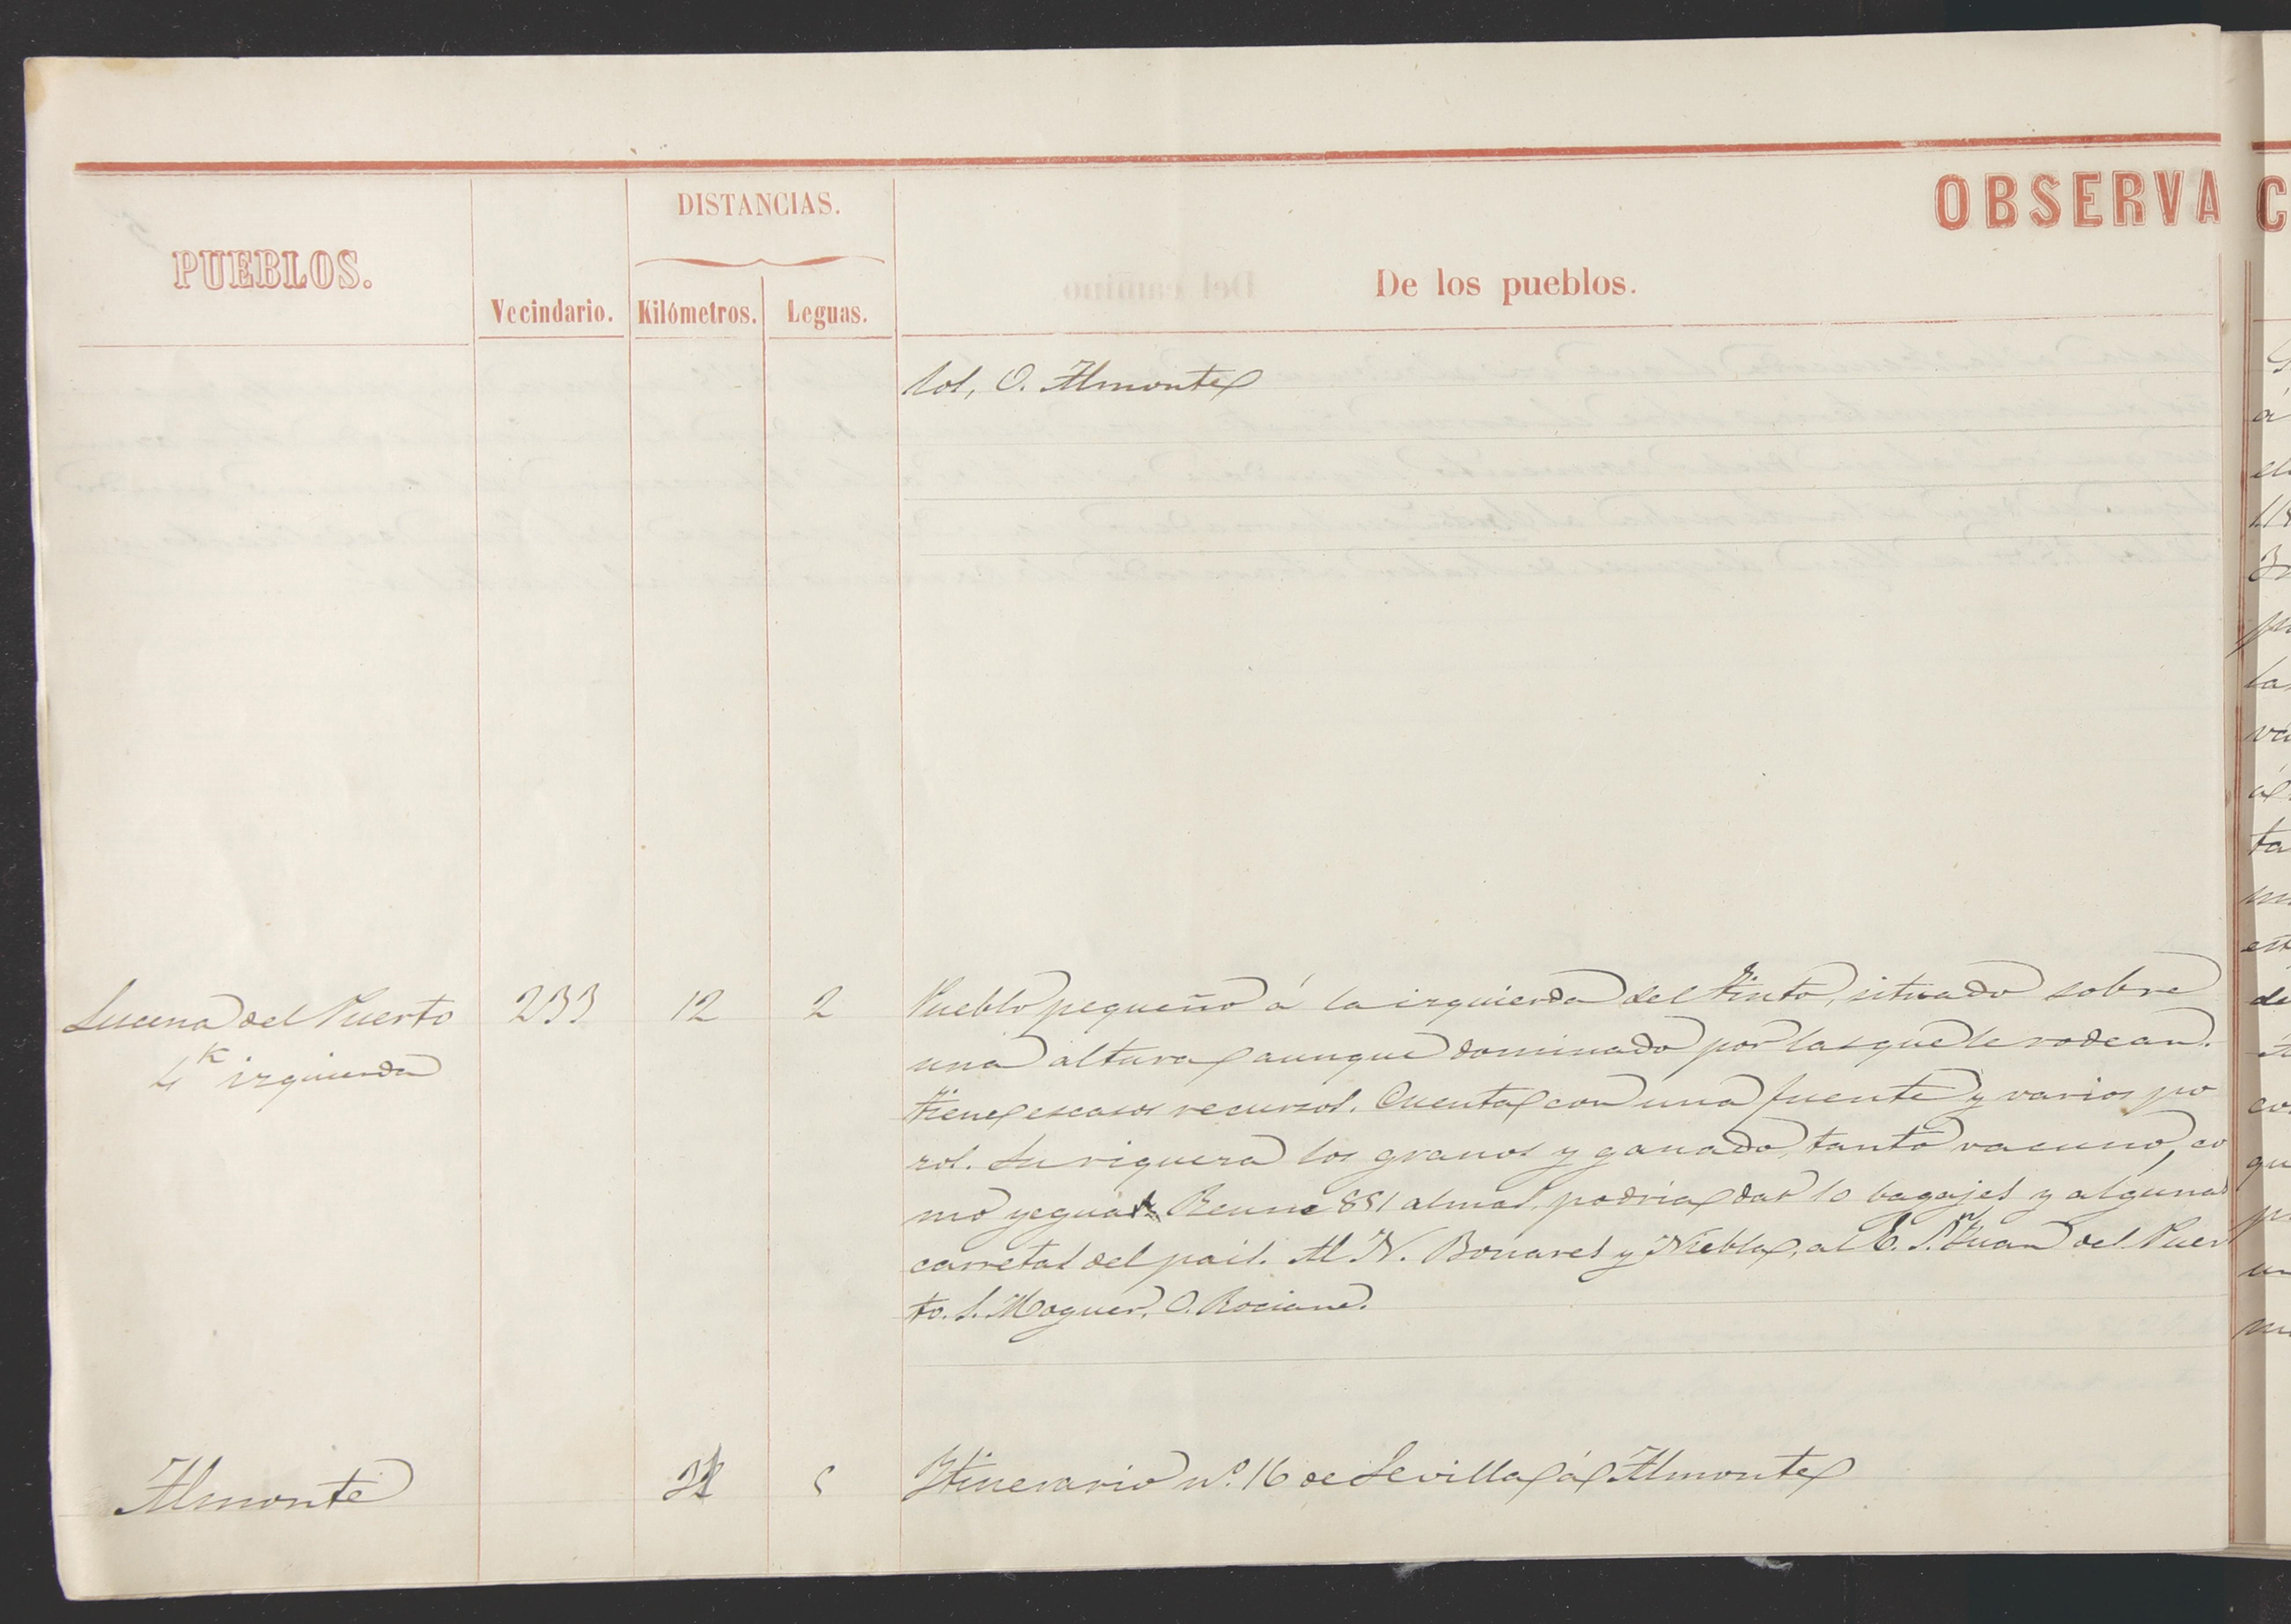 OBSERVA
DISTANCIAS.
PUEBLOS.
De los pueblos.
Vecindario. Kilómetros. Leguas.
los, O. Almonte
Lucena del Puerto 233 12 2 Pueblo pequeño á la izquierda del tinto, situado sobre
4 K izquierda
una altura aunque dominado por las que le rodean.
tiene escasos recursos. Cuenta con una fuente y varios po
zos. Su riquera los granos y ganado, tanto vacuno, co
mo yeguas. Reune 851 almas, podria dar 10 bagajes y algunas
carretas del pais. Al N. Bonares y Niebla, al E. S. Juan del Puer
to. S. Moguer, O. Rociana.
Almonte 5 Itinerario nº. 16 de Sevilla á Almonte